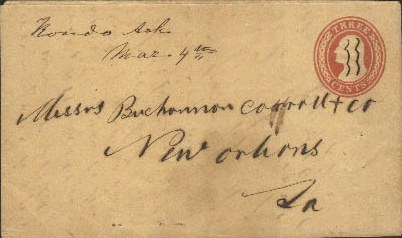 Rondo Ark
Mar. 4th
THREE
CENTS
Messrs Buchannon Carroll & co
New orleans
La